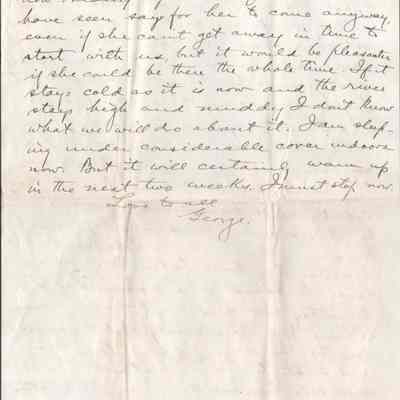 have seen, say for her to come anyway,
even if she can't get away in time to
start with us, but it would be pleasanter
if she could be there the whole time. If it
stays cold as it is now and the river
stays high and muddy, I don't know
what we will do about it. I am sleep-
ing under considerable cover indoors
now. But it will certainly warm up
in the next two weeks. I must stop now.
Love to all
George.